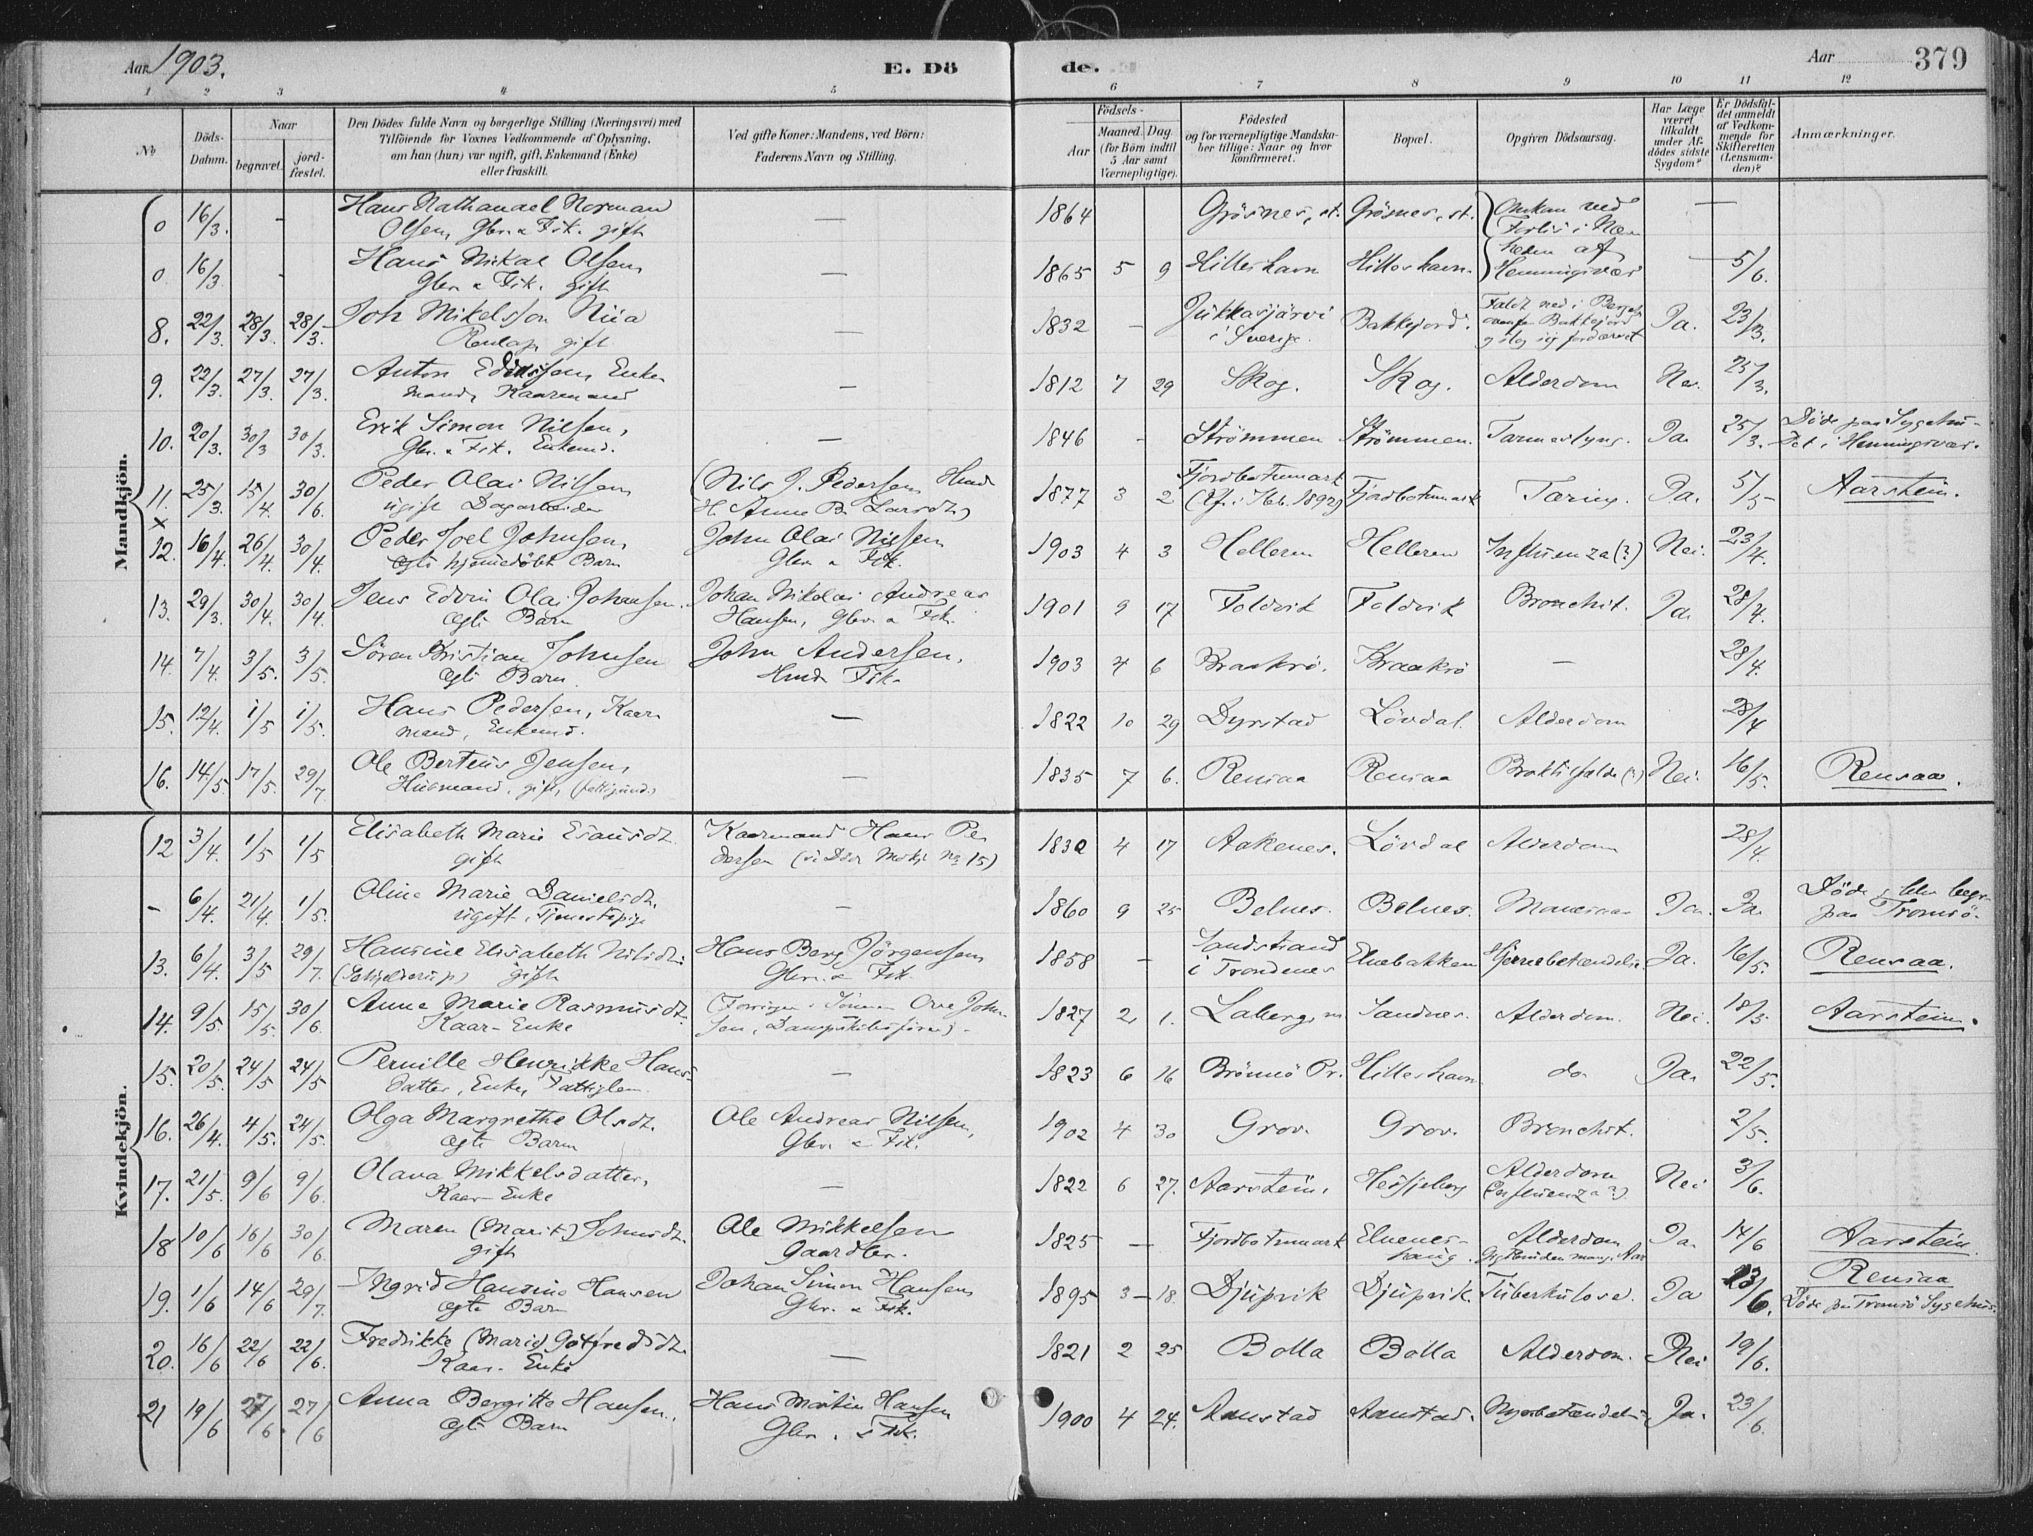 Aar 1903.
E. Dö
de.
Aar
379
1 2 3 4 5 6 7 8 9 10 11 12
No
Döds-Datum.
Naar
begravet.
jord-fæstet.
Den Dödes fulde Navn og borgerlige Stilling (Næringsvei) med
Tilföiende for Voxnes Vedkommende af Oplysning,
om han (hun) var ugift, gift, Enkemand (Enke)
eller fraskilt.
Ved gifte Koner: Mandens, ved Börn:
Faderens Navn og Stilling.
Födsels-
Aar
Maaned. Dag.
(for Börn indtil
5 Aar samt
Værnepligtige).
Födested
og for værnepligtige Mandska-
ber tillige: Naar og hvor
konfirmeret.
Bopæl.
Opgiven Dödsaarsag.
Har Læge
været
tilkaldt
under Af-
dödes sidste
Sygdom?
Er Dödsfal-
det anmeldt
af Vedkom-
mende for
Skifteretten
(Lensman-
den)?
Anmærkninger.
Mandkjön.
0 16/3. - Hans Nathanael Norman — 1864 Grösnes, st. Grösnes, st. Omkom ved —
Olsen, Gbr. & Fsk. gift Forlis i Nær
0 16/3 - Hans Mikal Olsen — 1865 5 9 Hilleshavn Hilleshavn. heden af — 5/6.
Gbr. & Fsk. gift Henningsvær
8. 22/3. 28/3. 28/3. Joh Mikelsson Niia — 1832 - Jukkasjärvi Bakkejord. Faldt ned i Berget Ja. 23/3.
gift i Sverige. Bakkejord
og slog sig fordærvet
9. 22/3. 27/3. 27/3. Anton Enke- — 1812 7 29 Skog. Skog. Alderdom Nei. 25/3.
mand, Kaarmand
10. 20/3. 30/3 30/3. Erik Simon Nilsen, — 1846 - Strömmen Strömmen. Tarmeslyng. Ja. 25/3. Döde paa Sygehu-
Gbr. & Fsk. Enkemd. set i Henningsvær.
11. 25/3. 15/4. 30/6. Peder Olai Nilsen (Nils J. Pedersen Husm 1877 3 2 Fjordbotnmark Fjordbotnmark Tæring. Ja. 5/5 Aarstein.
ugift Dagarbeider H. Anne B. Larsdt.)
x 12. 16/4. 26/4. 30/4. Peder Joel Johnsen, John Olai Nilsen 1903 4 3 Helleren Helleren Influenza (?) Nei. 23/4.
ægte hjemmedöbt Barn Gbr. & Fsk.
13. 29/3. 30/4. 30/4. Jens Edvin Olai Johansen. Johan Nikolai Andreas 1901 9 17 Foldvik Foldvik Bronchit. Ja. 28/4.
ægte Barn Hansen, Gbr. & Fsk.
14. 7/4. 3/5. 3/5. Sören Kristian Johnsen John Andersen, 1903 4 6 Braakrö. Kraakrö — 28/4.
ægte Barn. Husm. Fsk.
15. 12/4. 1/5 1/5. Hans Pedersen, Kaar- — 1822 10 29 Dyrstad Lövdal. Alderdom 28/4
mand, Enkemd.
16. 14/5. 17/5. 29/7 Ole Berteus Jensen, — 1835 7 6. Rensaa Rensaa Nei. 16/5. Rensaa.
Husmand, gift,
Kvindekjön.
12 3/4. 1/5 1/5 Elisabeth Marie Esausdt. Kaarmand Hans Pe- 1830 4 17 Aakenes. Lövdal Alderdom 28/4.
gift dersen No 15)
- 6/4. 21/4. 1/5. Oline Marie Danielsdt. — 1860 9 25 Belnes. Belnes. Ja. Ja Döde & blev begr.
ugift, Tjenestepige paa Tromsö.
13. 6/4. 3/5 29/7. Hansine Elisabeth Nilsdt. Hans Berg Jörgensen 1858 - Sandstrand Elvebakken Hjernebetændelse. Ja. 16/5. Rensaa.
(Schjelderup) gift Gbr. & Fsk i Trondenes
14. 9/5. 15/5. 30/6. Anne Marie Rasmusdt. (Forsörges Sönnen Ove John- 1827 2 1. Laberg Sandnes. Alderdom. Nei. 18/5 Aarstein.
Kaar-Enke sen, Dampskibsförer)
15. 20/5. 24/5 24/5 Pernille Henrikke Hans- — 1823 6 16 Brönnö Pr. Hilleshavn do Ja. 22/5.
datter, Enke, Fattiglem
16. 26/4. 4/5. 24/5. Olga Margrethe Olsdt. Ole Andreas Nilsen, 1902 4 30 Grov. Grov. Bronchit. 2/5.
ægte Barn Gbr. & Fsk.
17. 21/5. 9/6 9/6. Olava Mikkelsdatter, — 1822 6 27. Aarstein. Hessjeberg Alderdom Nei 3/6.
Kaar-Enke (Influenza?)
18 10/6 16/6 30/6. Maren (Marit) Johnsdt. Ole Mikkelsen 1825 — Fjordbotnmark Elvenes- Alderdom Ja 14/6 Aarstein
gift Gaardbr. haug.
19. 1/6 14/6 29/7. Ingrid Hansine Hansen Johan Simon Hansen 1895 3 - 18. Djupvik Djupvik. Tuberkulose. Ja 13/6. Rensaa
ægte Barn Gbr. & Fsk. Döde paa Tromsö Sygehus.
20. 16/6 22/6 22/6. Fredrikke (Marie) Gotfredsdt. — 1821 2 25 Bolla Bolla Alderdom. Nei 19/6.
Kaar-Enke
21 19/6 27/6. 27/6 Anna Bergitte Hansen. Hans Martin Hansen 1900 4 24. Aanstad Aanstad. Ja. 23/6.
ægte Barn Gbr. & Fsk.